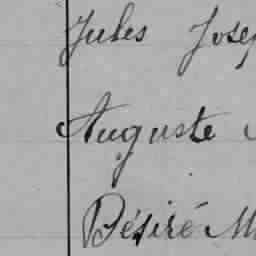 Jules Jose
Auguste
Désiré M